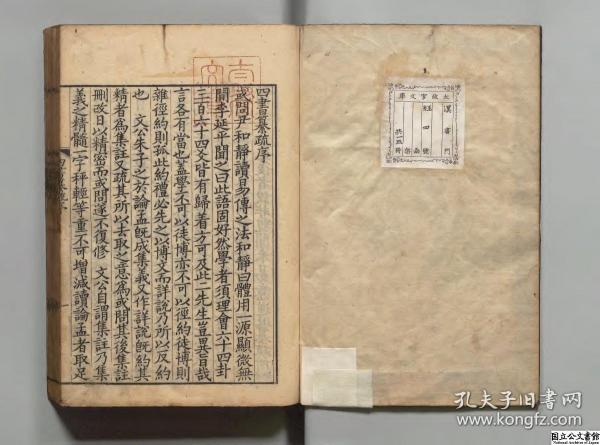 四書纂疏序
或問尹和靜讀易傳之法和靜曰體用一源顯微無
間李延平聞之曰此語固好然學者須理會六十四卦
三百六十四爻皆有歸着方可及此二先生豈異旨哉
言各有當也蓋學不可以徒博亦不可以徑約徒博則
雜徑約則孤此約禮必先之以博文而詳說乃所以反約
也 文公朱子之於論孟既成集義又作詳說既約其
精者爲集註又疏其所以去取之意爲或問其後集註
刪改日以精密而或問遂不復修 文公自謂集註乃集
義之精髓一字秤輕等重不可增減讀論孟者取足
太政官文庫
漢書門
四
號
函
架
共一五冊
孔夫子旧书网
国立公文書館
National Archives of Japan